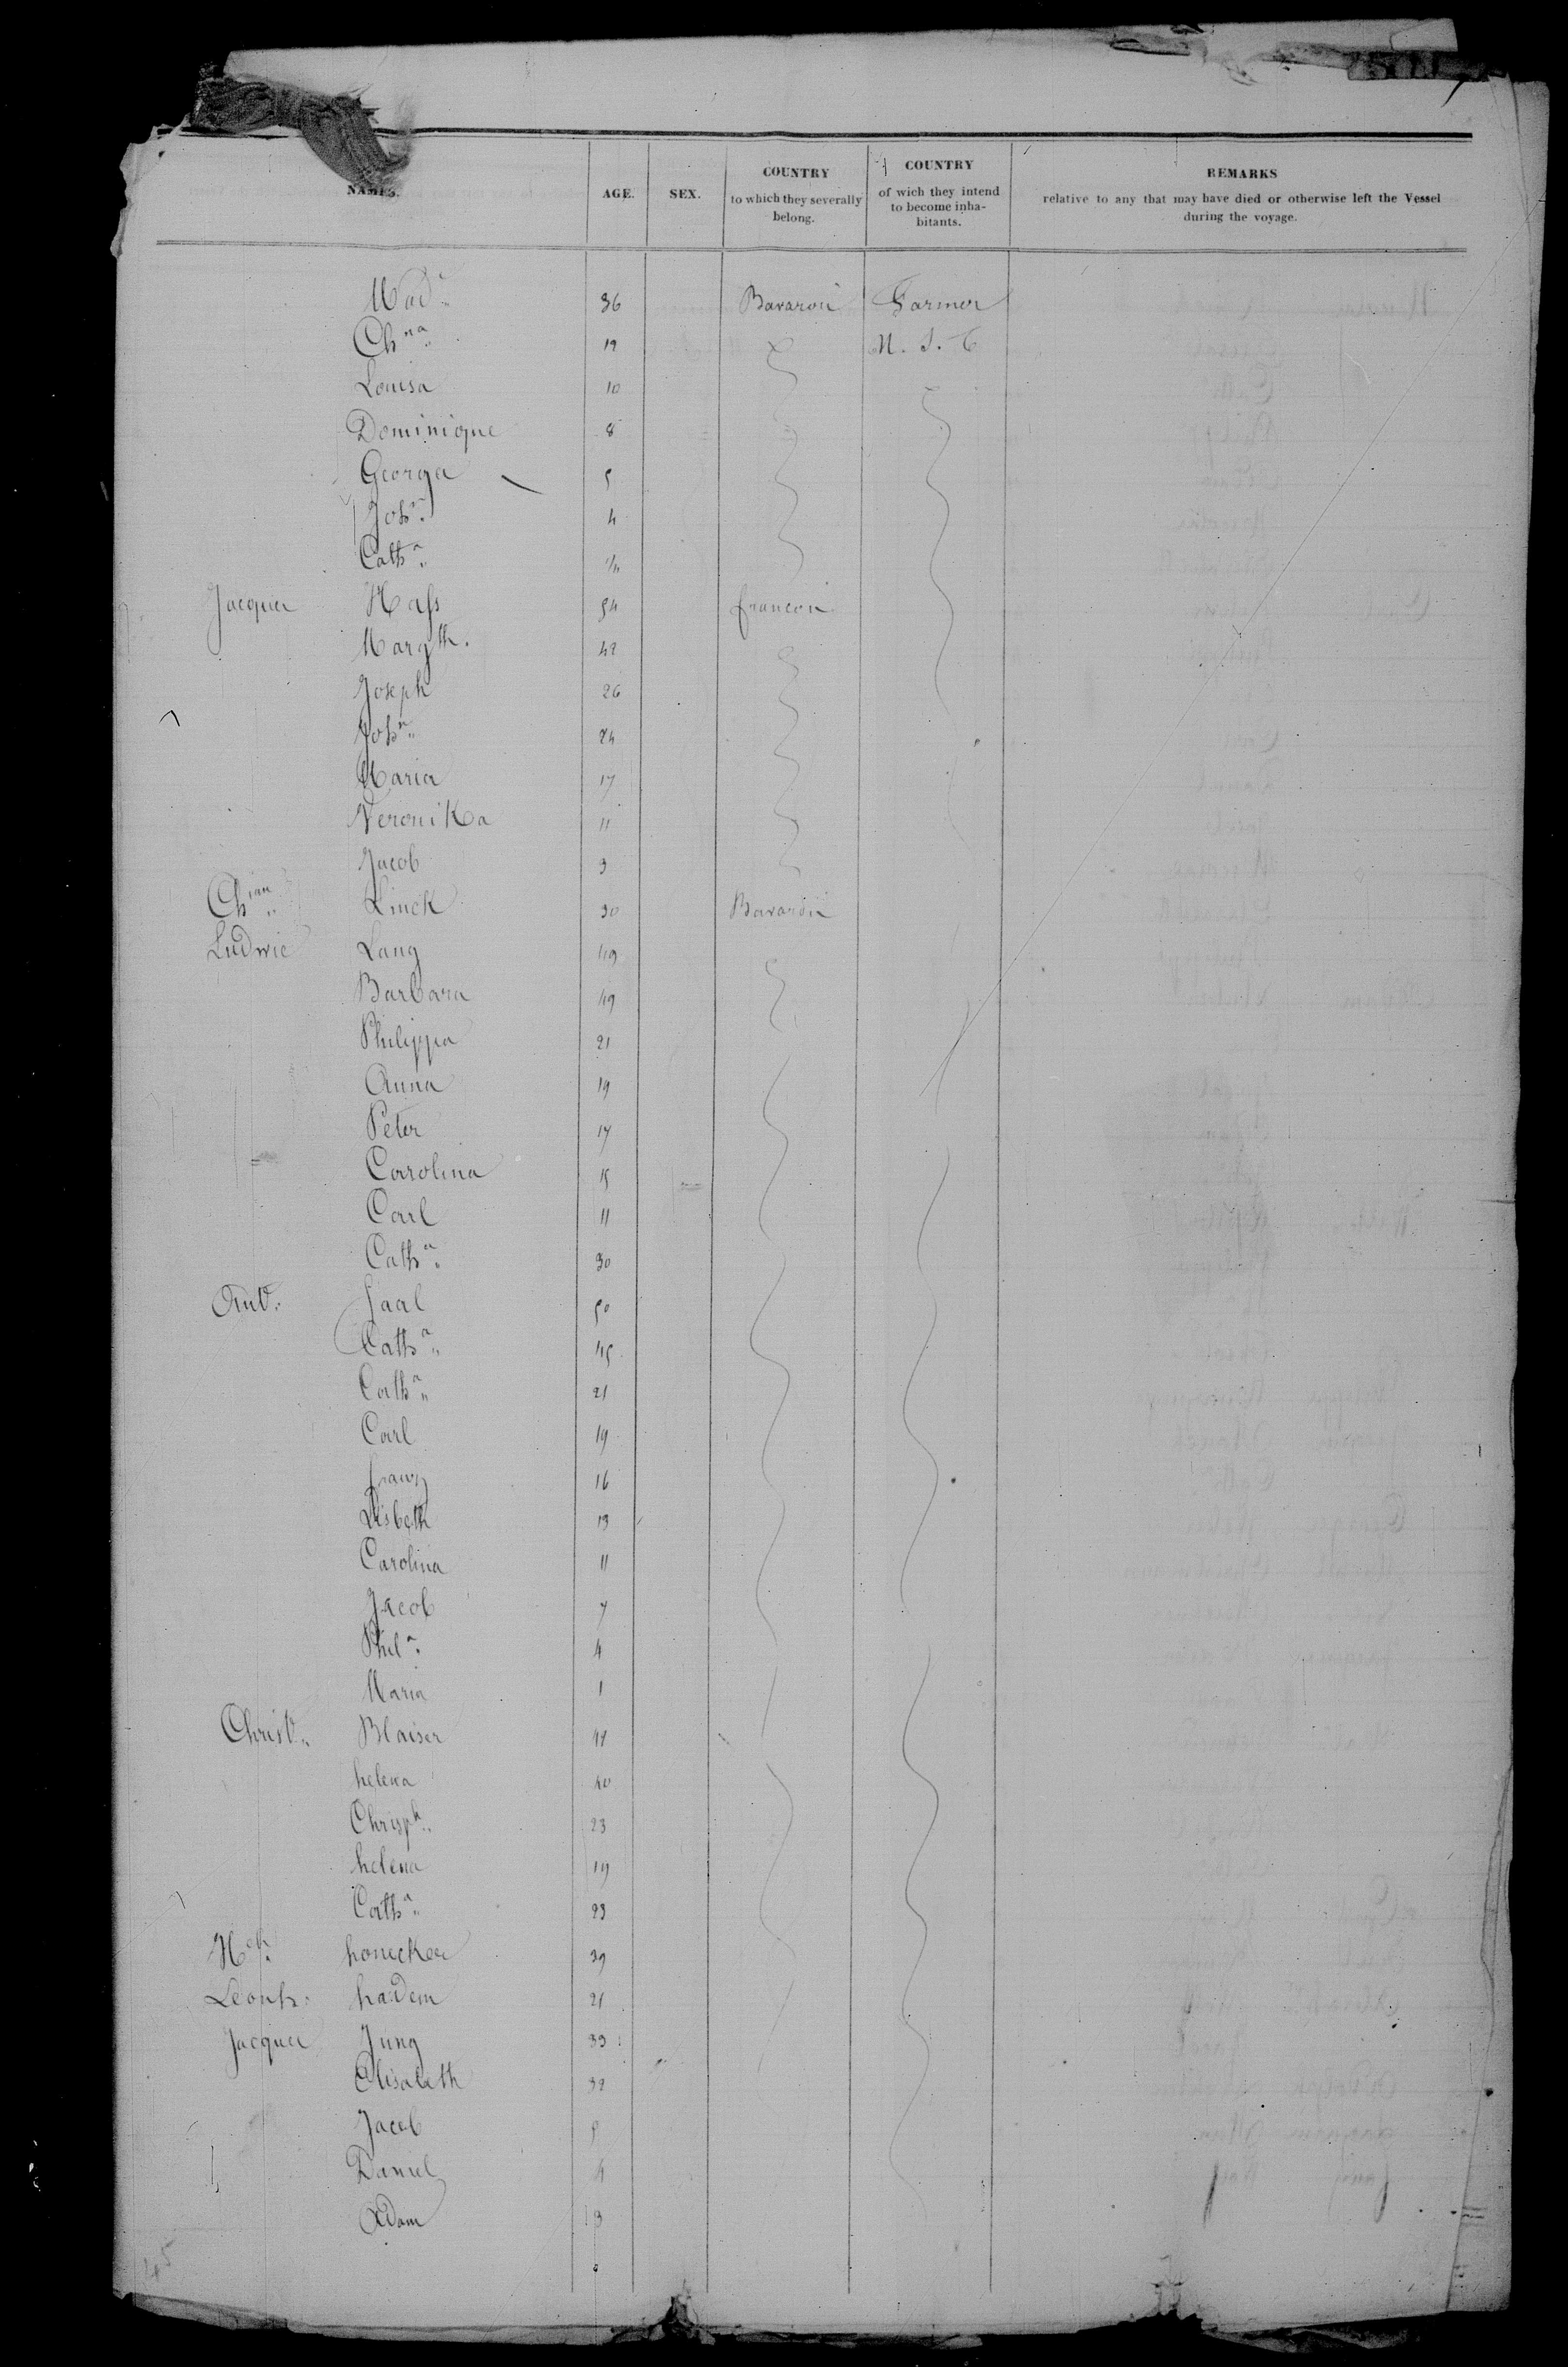 NAMES. AGE. SEX. COUNTRY to which they severally belong. COUNTRY of wich they intend to become inhabitants. REMARKS relative to any that may have died or otherwise left the Vessel during the voyage.
Mad.a 36 Bavaroi Farmer
Ch.na 12
Louisa 10
Dominique 8
George 5
Joh.n 4
Cath.a
Jacques Hass 54 francoi
Marg.th 42
Joseph 26
Joh.n 24
Maria 17
Veronika 11
Jacob 9
Ch.ian Linck 30 Bavaroi
Ludwic Lang 49
Barbara 49
Philippa 21
Anna 19
Peter 17
Carolina 15
Carl 11
Cath.a 30
Ant. Saal 50
Cath.a 45
Cath.a 21
Carl 19
franz 16
Lisbeth 13
Carolina 11
Jacob 7
Phil.a 4
Maria 1
Christ. Blaiser
helena 40
Christ.ph 23
helena 19
Cath.a 23
honecker 39
Leonh. hadem 21
Jacques Jung 33
Elisabeth 32
Jacob
Daniel 4
Adam 3
45